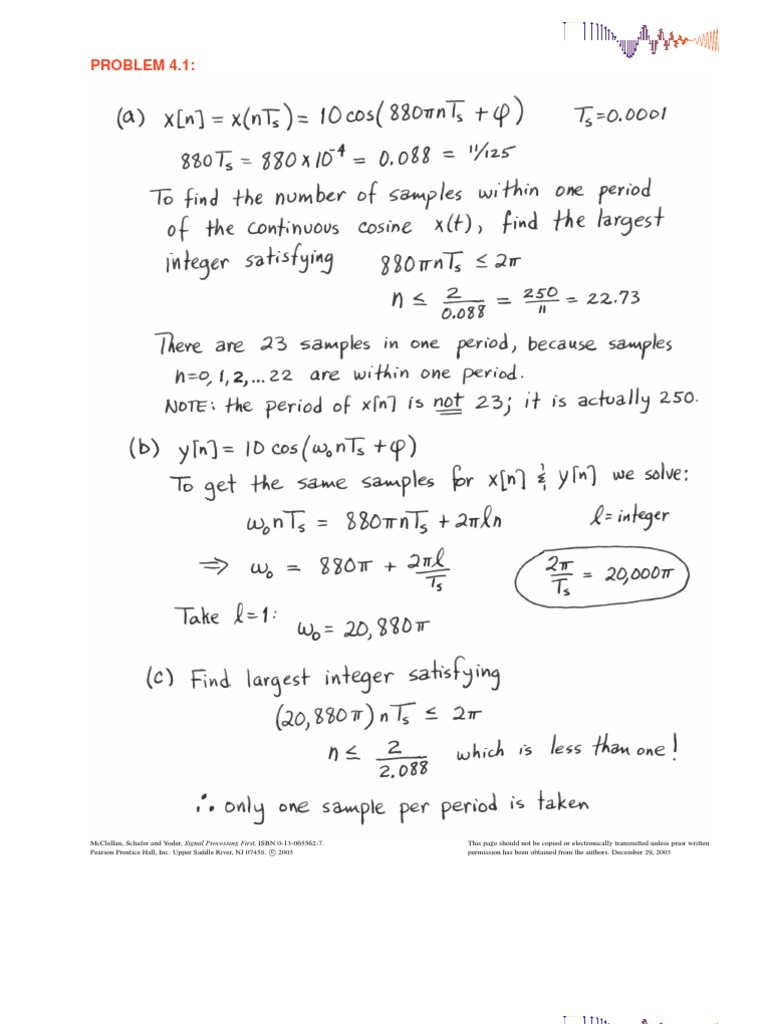 PROBLEM 4.1:
(a) x[n] = x(nTs) = 10 cos(880πnTs + φ) Ts = 0.0001
880Ts = 880 × 10⁻⁴ = 0.088 = 11/125
To find the number of samples within one period
of the continuous cosine x(t), find the largest
integer satisfying 880πnTs ≤ 2π
n ≤ 2/0.088 = 250/11 = 22.73
There are 23 samples in one period, because samples
n=0, 1, 2, ... 22 are within one period.
NOTE: the period of x[n] is not 23; it is actually 250.
(b) y[n] = 10 cos(ω₀nTs + φ)
To get the same samples for x[n] & y[n] we solve:
ω₀nTs = 880πnTs + 2πℓn ℓ = integer
⇒ ω₀ = 880π + 2πℓ/Ts 2π/Ts = 20,000π
Take ℓ=1: ω₀ = 20,880π
(c) Find largest integer satisfying
(20,880π) nTs ≤ 2π
n ≤ 2/2.088 which is less than one!
∴ only one sample per period is taken
McClellan, Schafer and Yoder, Signal Processing First, ISBN 0-13-065562-7.
Pearson Prentice Hall, Inc. Upper Saddle River, NJ 07458. © 2003
This page should not be copied or electronically transmitted unless prior written
permission has been obtained from the authors. December 29, 2003